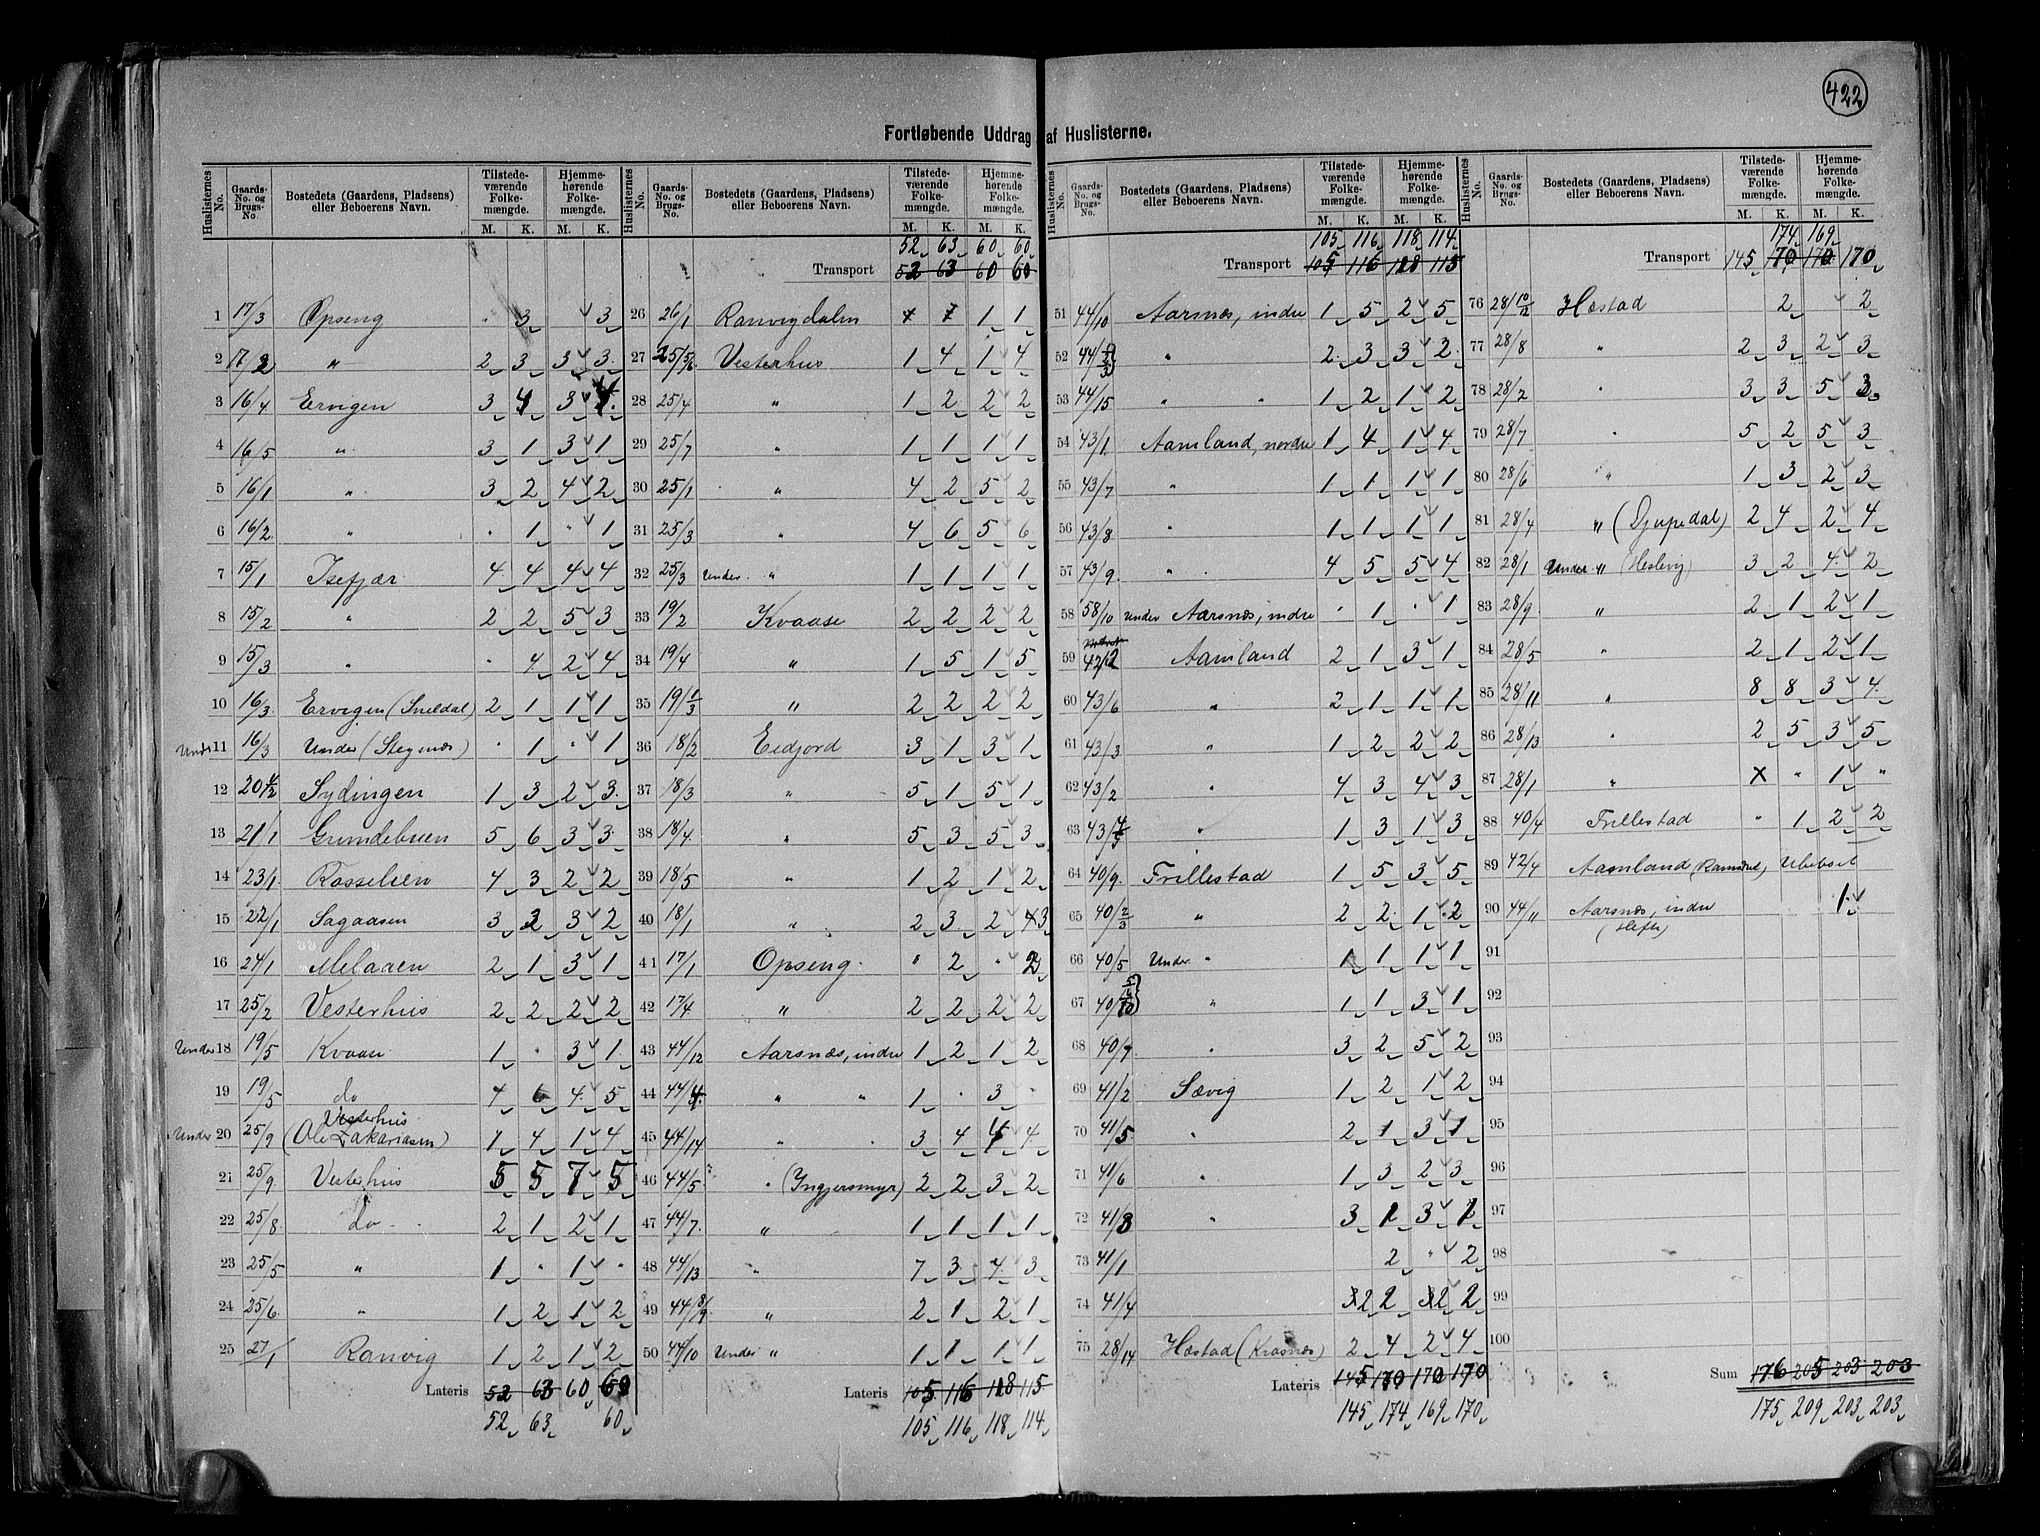 422
Fortløbende Uddrag af Huslisterne.
Huslisternes No. Gaards-No. og Brugs-No. Bostedets (Gaardens, Pladsens) eller Beboerens Navn. Tilstedeværende Folkemængde. M. K. Hjemmehørende Folkemængde. M. K.
1 17/3 Opseng " 3 3
2 17/2 " 2 3 3 3
3 16/4 Ervigen 3 4 3 4
4 16/5 " 3 1 3 1
5 16/1 " 3 2 4 2
6 16/2 " " 1 " 1
7 15/1 Isefjær 4 4 4 4
8 15/2 " 2 2 5 3
9 15/3 " " 4 2 4
10 16/3 Ervigen (Snildal) 2 1 1 1
Under 11 16/3 Under (Stegenæs) " 1 " 1
12 20 1/2 Sydingen 1 3 2 3
13 21/1 Grundebuen 5 6 3 3
14 23/1 Rosselien 4 3 2 2
15 22/1 Sagaasen 3 3 3 2
16 24/1 Melaaen 2 1 3 1
17 25/2 Vesterhus 2 2 2 2
Under 18 19/5 Kvaase 1 " 3 1
19 19/5 do 4 6 4 5
Under 20 25/9 Vesterhus (Ole Zakariasen) 1 4 1 4
21 25/9 Vesterhus 5 5 7 5
22 25/8 do 2 1 2 1
23 25/5 " 1 " 1 "
24 25/6 " 1 2 1 2
25 27/1 Ranvig 1 2 1 2
Lateris 52 63 60
52 63 60
Huslisternes No. Gaards-No. og Brugs-No. Bostedets (Gaardens, Pladsens) eller Beboerens Navn. Tilstedeværende Folkemængde. M. K. Hjemmehørende Folkemængde. M. K.
52 63 60 60
Transport 52 63 60 60
26 26/1 Ranvigdalen 1 1
27 25/5/6 Vesterhus 1 4 1 4
28 25/4 " 1 2 2 2
29 25/7 " 1 1 1 1
30 25/1 " 4 2 5 2
31 25/3 " 4 6 5 6
32 25/3 Under " 1 1 1 1
33 19/2 Kvaase 2 2 2 2
34 19/4 " 1 5 1 5
35 19/1/3 " 2 2 2 2
36 18/2 Eidjord 3 1 3 1
37 18/3 " 5 1 5 1
38 18/4 " 5 3 5 3
39 18/5 " 1 2 1 2
40 18/1 " 2 3 2 3
41 17/1 Opseng " 2 " 2
42 17/4 " 2 2 2 2
43 44/12 Aarsnæs, indre 1 2 1 2
44 44/4 " " 1 " 3 "
45 44/14 " " 3 4 4 4
46 44/5 " (Ingjersmyr) 2 2 3 2
47 44/7 " 1 1 1 1
48 44/13 " 7 3 4 3
49 44/8/9 " 2 1 2 1
50 44/10 Under " 1 1 1 1
Lateris 105 116 118 115
105 116 118 114
Huslisternes No. Gaards-No. og Brugs-No. Bostedets (Gaardens, Pladsens) eller Beboerens Navn. Tilstedeværende Folkemængde. M. K. Hjemmehørende Folkemængde. M. K.
105 116 118 114
Transport 105 116 118 115
51 44/10 Aarsnæs, indre 1 5 2 5
52 44/ " 2 3 3 2
53 44/15 " " 1 2 1 2
54 43/1 Aamland, nordre 1 4 1 4
55 43/7 " 1 1 1 1
56 43/8 " 1 1 1 1
57 43/9 " 4 5 5 4
58 58/10 Under Aarsnæs, indre " 1 " 1
59 42/2 Aamland 2 1 3 1
60 43/6 " 2 1 1 1
61 43/3 " 1 2 2 2
62 43/2 " 4 3 4 3
63 43/4/5 " 1 3 1 3
64 40/9 Frillestad 1 5 3 5
65 40/2/3 " 2 2 1 2
66 40/5 Under " 1 1 1 1
67 40/ " 1 1 3 1
68 40/7 " 3 2 5 2
69 41/2 Sævig 1 2 1 2
70 41/5 " 2 1 3 1
71 41/6 " 1 3 2 3
72 41/3 " 3 3
73 41/1 2 " 2
74 41/4 2 2 2 2
75 28/14 Hæstad (Krosnæs) 2 4 2 4
Lateris 145 170 170 170
145 174 169 170
Huslisternes No. Gaards-No. og Brugs-No. Bostedets (Gaardens, Pladsens) eller Beboerens Navn. Tilstedeværende Folkemængde. M. K. Hjemmehørende Folkemængde. M. K.
174 169
Transport 145 170 170 170
76 28/10/12 Hæstad 2 2
77 28/8 " 2 3 2 3
78 28/2 " 3 3 5 3
79 28/7 " 5 2 5 3
80 28/6 " 1 3 2 3
81 28/4 " (Djupedal) 2 4 2 4
82 28/1 Under " (Heslevig) 3 2 4 2
83 28/9 " 2 1 2 1
84 28/5 " 2 1 2 1
85 28/11 " 8 8 3 4
86 28/13 " 2 5 3 5
87 28/1 " x " 1 "
88 40/4 Frillestad " 1 2 2
89 42/4 Aamland Ubeboet
90 44/11 Aarsnæs, indre 1
91
92
93
94
95
96
97
98
99
100
Sum 176 205 203 203
175 209 203 203